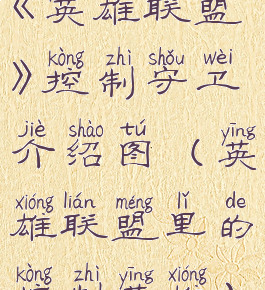 《英雄联盟
kòng zhì shǒu wèi
》控制守卫
jiè shào tú yīng
介绍图（英
xióng lián méng lǐ de
雄联盟里的
kòng zhì yīng xióng
控制英雄）